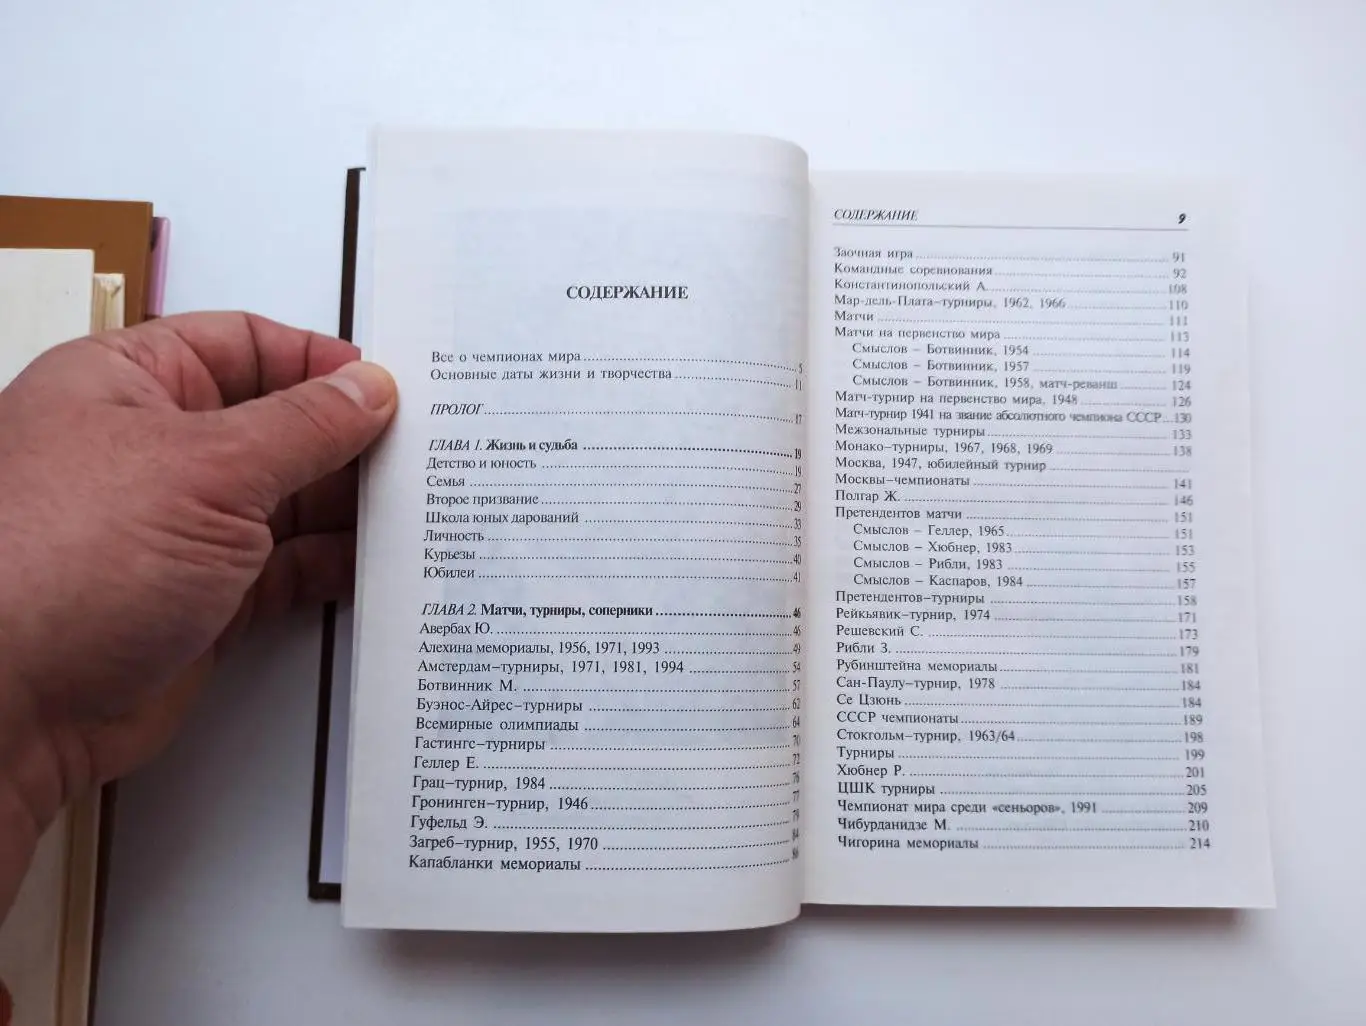 СОДЕРЖАНИЕ
Все о чемпионах мира 5
Основные даты жизни и творчества 11
ПРОЛОГ 17
ГЛАВА 1. Жизнь и судьба 19
Детство и юность 19
Семья 27
Второе призвание 29
Школа юных дарований 33
Личность 35
Курьезы 40
Юбилеи 41
ГЛАВА 2. Матчи, турниры, соперники 46
Авербах Ю. 46
Алехина мемориалы, 1956, 1971, 1993 49
Амстердам–турниры, 1971, 1981, 1994 54
Ботвинник М. 57
Буэнос-Айрес–турниры 62
Всемирные олимпиады 64
Гастингс–турниры 70
Геллер Е. 72
Грац–турнир, 1984 76
Гронинген–турнир, 1946 77
Гуфельд Э. 79
Загреб–турнир, 1955, 1970 84
Капабланки мемориалы 86
СОДЕРЖАНИЕ 9
Заочная игра 91
Командные соревнования 92
Константинопольский А. 108
Мар-дель-Плата–турниры, 1962, 1966 110
Матчи 111
Матчи на первенство мира 113
Смыслов – Ботвинник, 1954 114
Смыслов – Ботвинник, 1957 119
Смыслов – Ботвинник, 1958, матч-реванш 124
Матч-турнир на первенство мира, 1948 126
Матч-турнир 1941 на звание абсолютного чемпиона СССР 130
Межзональные турниры 133
Монако–турниры, 1967, 1968, 1969 138
Москва, 1947, юбилейный турнир
Москвы–чемпионаты 141
Полгар Ж. 146
Претендентов матчи 151
Смыслов – Геллер, 1965 151
Смыслов – Хюбнер, 1983 153
Смыслов – Рибли, 1983 155
Смыслов – Каспаров, 1984 157
Претендентов–турниры 158
Рейкьявик–турнир, 1974 171
Решевский С. 173
Рибли З. 179
Рубинштейна мемориалы 181
Сан-Паулу–турнир, 1978 184
Се Цзюнь 184
СССР чемпионаты 189
Стокгольм–турнир, 1963/64 198
Турниры 199
Хюбнер Р. 201
ЦШК турниры 205
Чемпионат мира среди «сеньоров», 1991 209
Чибурданидзе М. 210
Чигорина мемориалы 214